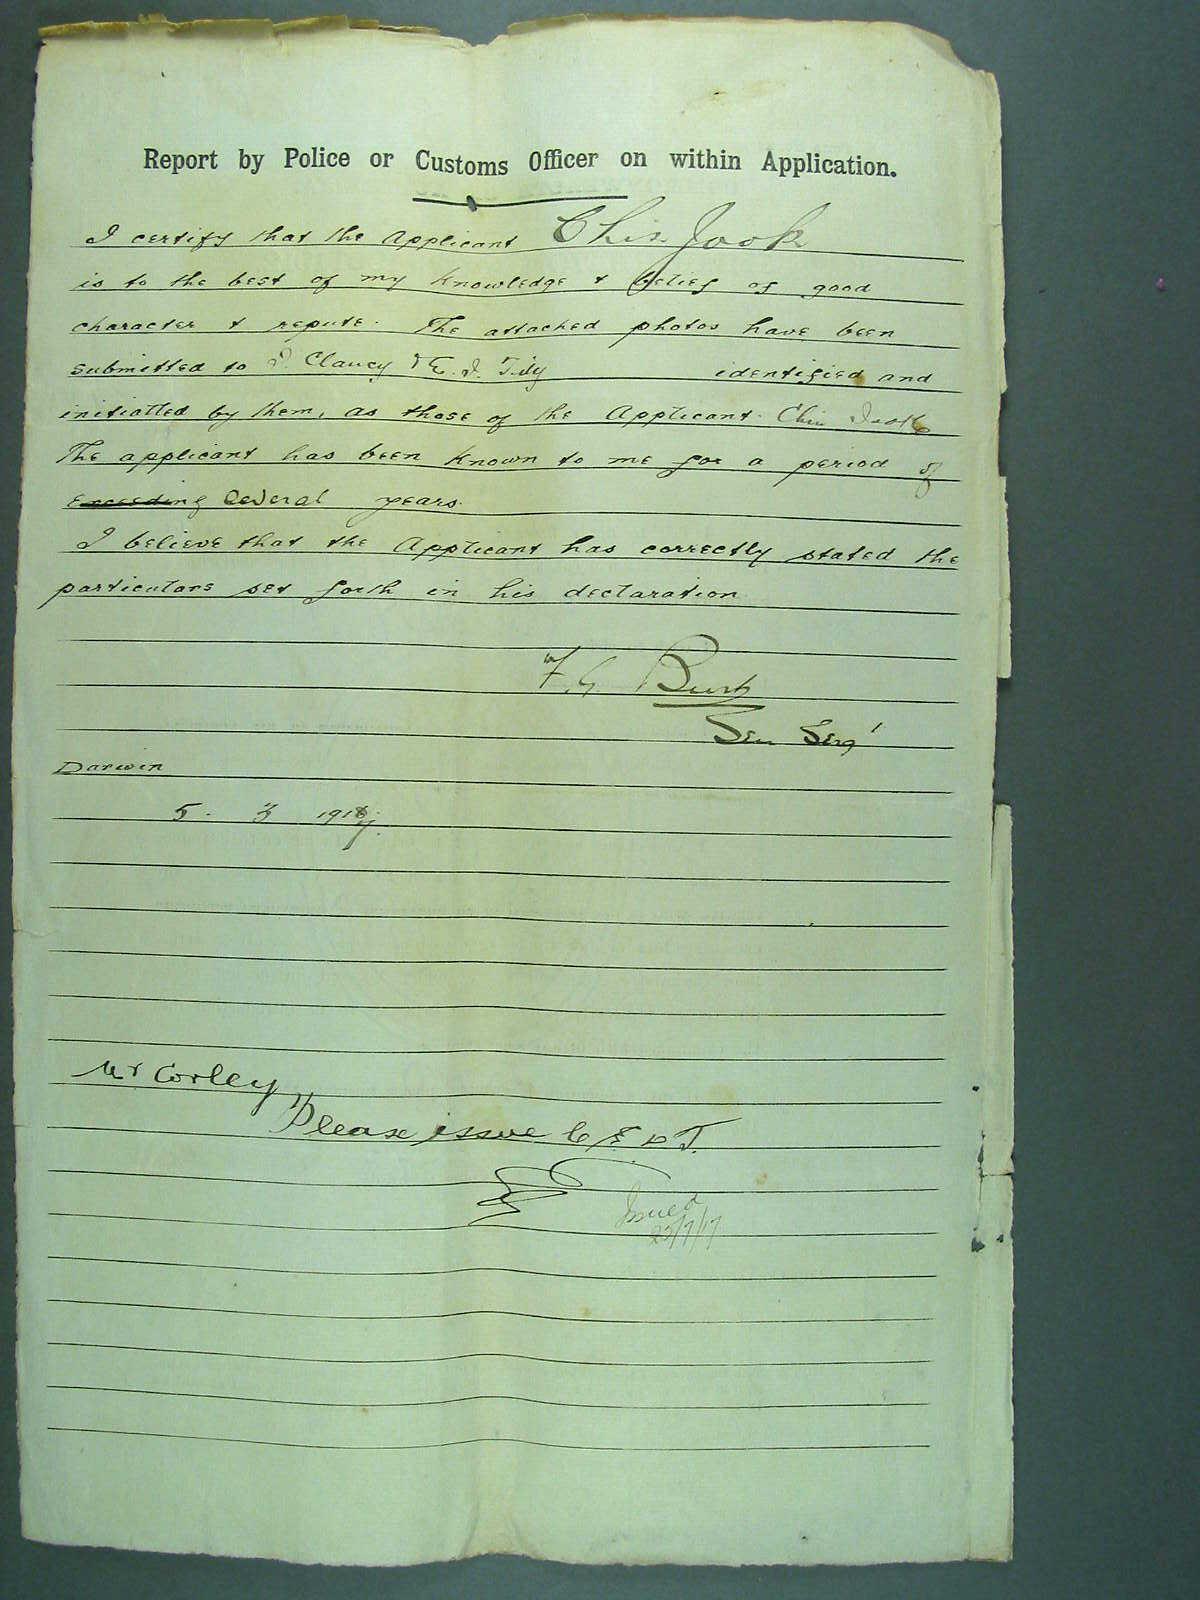 Report by Police or Customs Officer on within Application.
I certify that the Applicant Chin Jook
is to the best of my knowledge & belief of good
character & repute. The attached photos have been
submitted to J. Clancy & E. J. Tily identified and
initialled by them, as those of the Applicant. Chin Jook
The applicant has been known to me for a period of
exceeding several years.
I believe that the Applicant has correctly stated the
particulars set forth in his declaration
Sen Serg't
Darwin
5. 3 1917.
Mr Corley
Please issue C E D T.
Issued
25/7/17